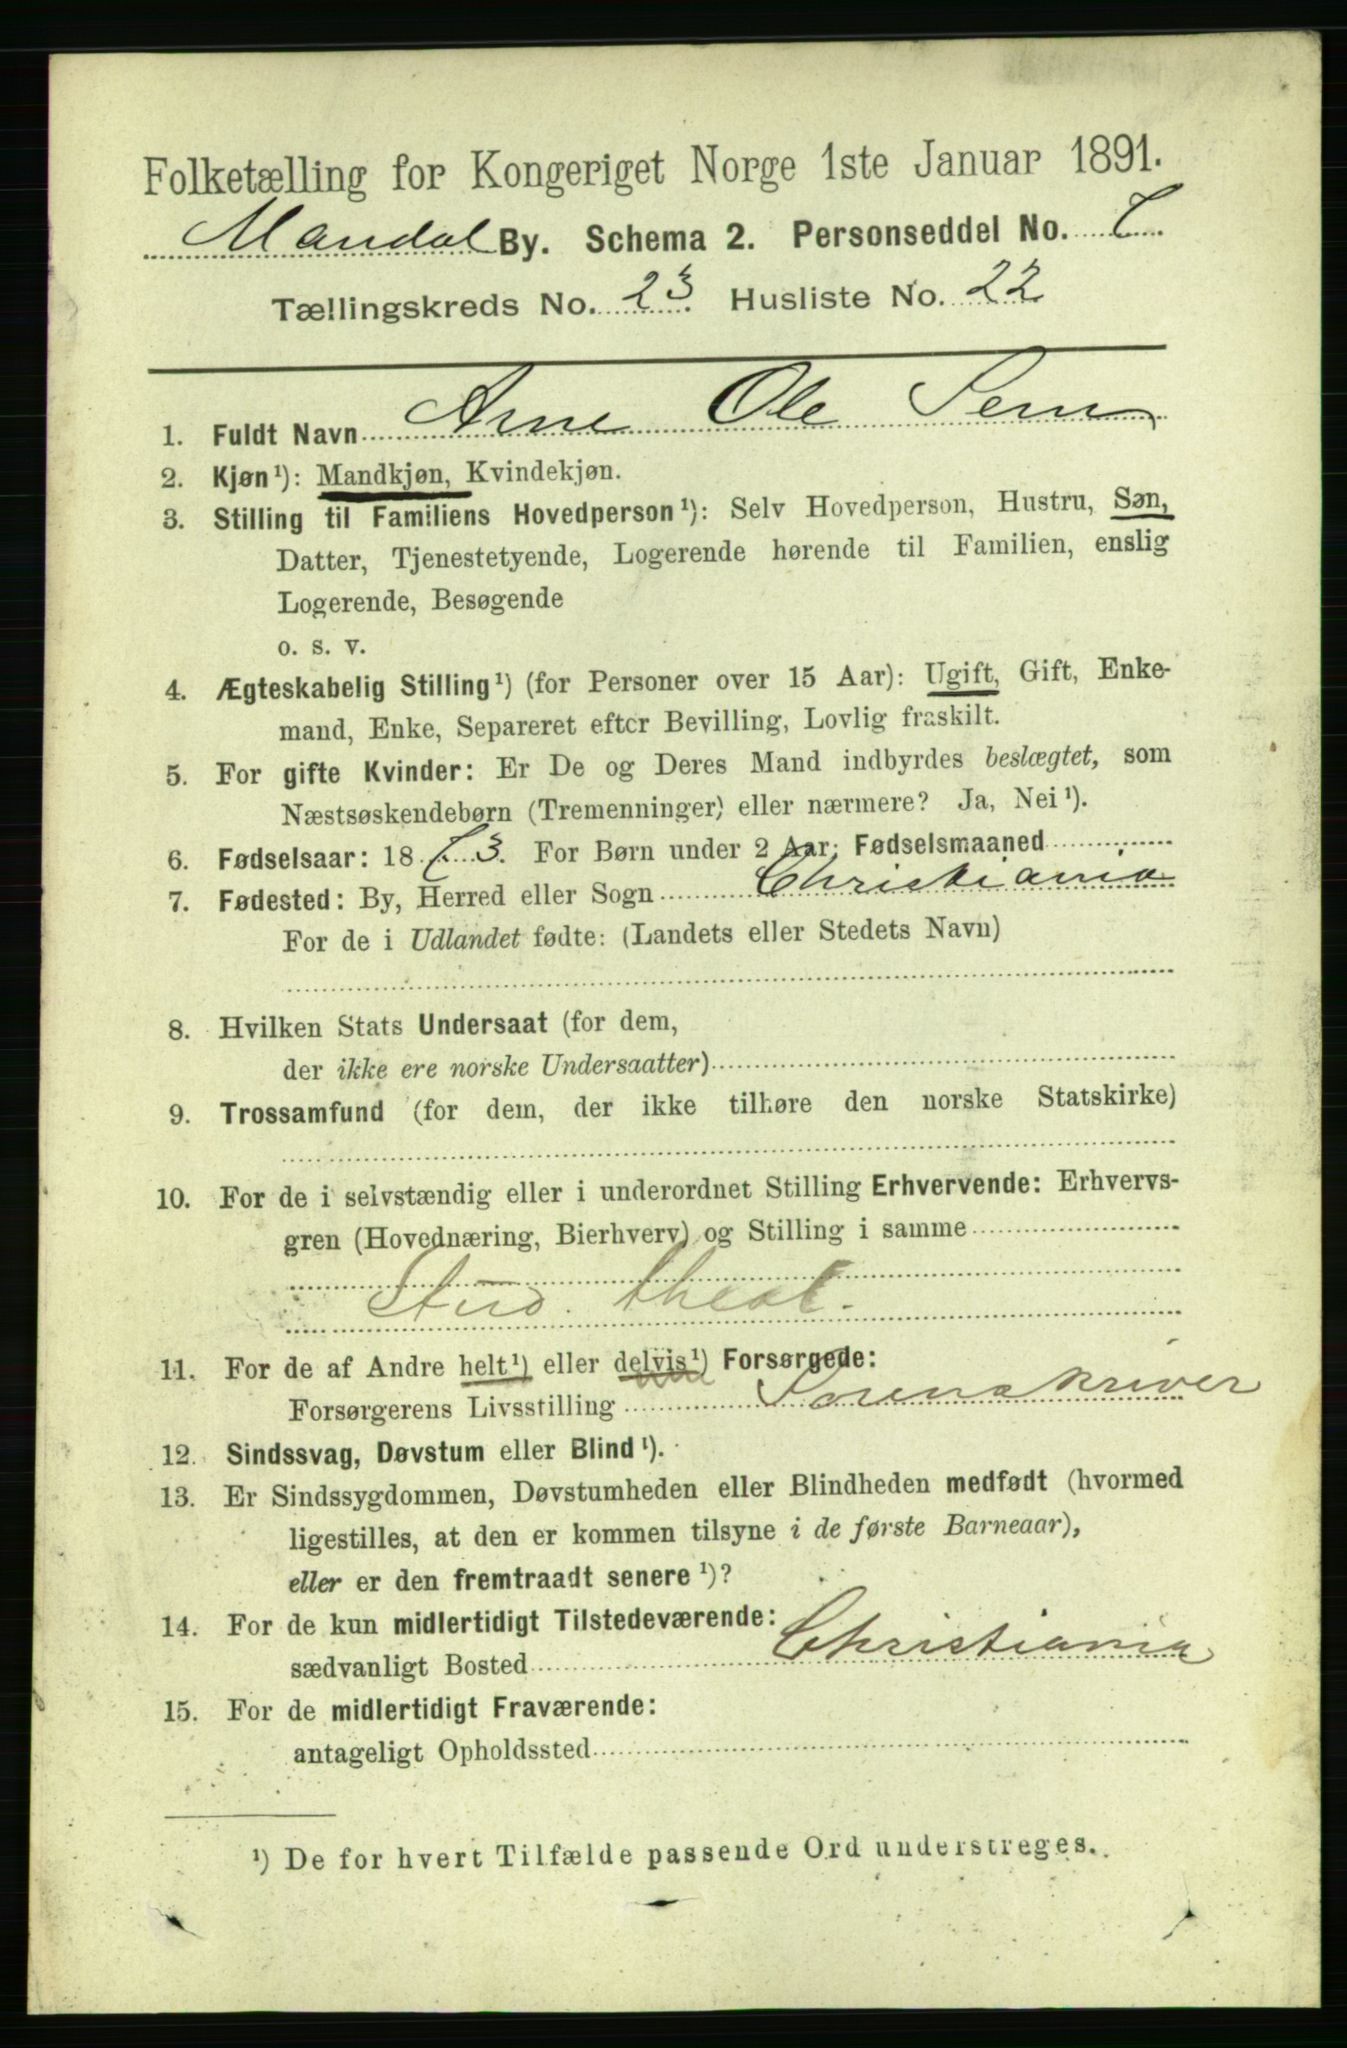 Folketælling for Kongeriget Norge 1ste Januar 1891.
Mandal By. Schema 2. Personseddel No.
Tællingskreds No. 23. Husliste No. 22
1. Fuldt Navn Arne Ole Sem
2. Kjøn¹): Mandkjøn, Kvindekjøn.
3. Stilling til Familiens Hovedperson¹): Selv Hovedperson, Hustru, Søn,
Datter, Tjenestetyende, Logerende hørende til Familien, enslig
Logerende, Besøgende
o. s. v.
4. Ægteskabelig Stilling¹) (for Personer over 15 Aar): Ugift, Gift, Enke-
mand, Enke, Separeret efter Bevilling, Lovlig fraskilt.
5. For gifte Kvinder: Er De og Deres Mand indbyrdes beslægtet, som
Næstsøskendebørn (Tremenninger) eller nærmere? Ja, Nei¹).
6. Fødselsaar: 18 3. For Børn under 2 Aar: Fødselsmaaned
7. Fødested: By, Herred eller Sogn Christiania
For de i Udlandet fødte: (Landets eller Stedets Navn)
8. Hvilken Stats Undersaat (for dem,
der ikke ere norske Undersaatter)
9. Trossamfund (for dem, der ikke tilhøre den norske Statskirke)
10. For de i selvstændig eller i underordnet Stilling Erhvervende: Erhvervs-
gren (Hovednæring, Bierhverv) og Stilling i samme
Stud. theol.
11. For de af Andre helt¹) eller delvis¹) Forsørgede:
Forsørgerens Livsstilling Sorenskriver
12. Sindssvag, Døvstum eller Blind¹).
13. Er Sindssygdommen, Døvstumheden eller Blindheden medfødt (hvormed
ligestilles, at den er kommen tilsyne i de første Barneaar),
eller er den fremtraadt senere¹)?
14. For de kun midlertidigt Tilstedeværende:
sædvanligt Bosted Christiania
15. For de midlertidigt Fraværende:
antageligt Opholdssted
¹) De for hvert Tilfælde passende Ord understreges.